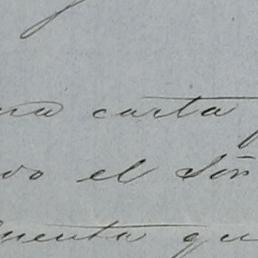 na carta
do el Sõr
cuenta qu